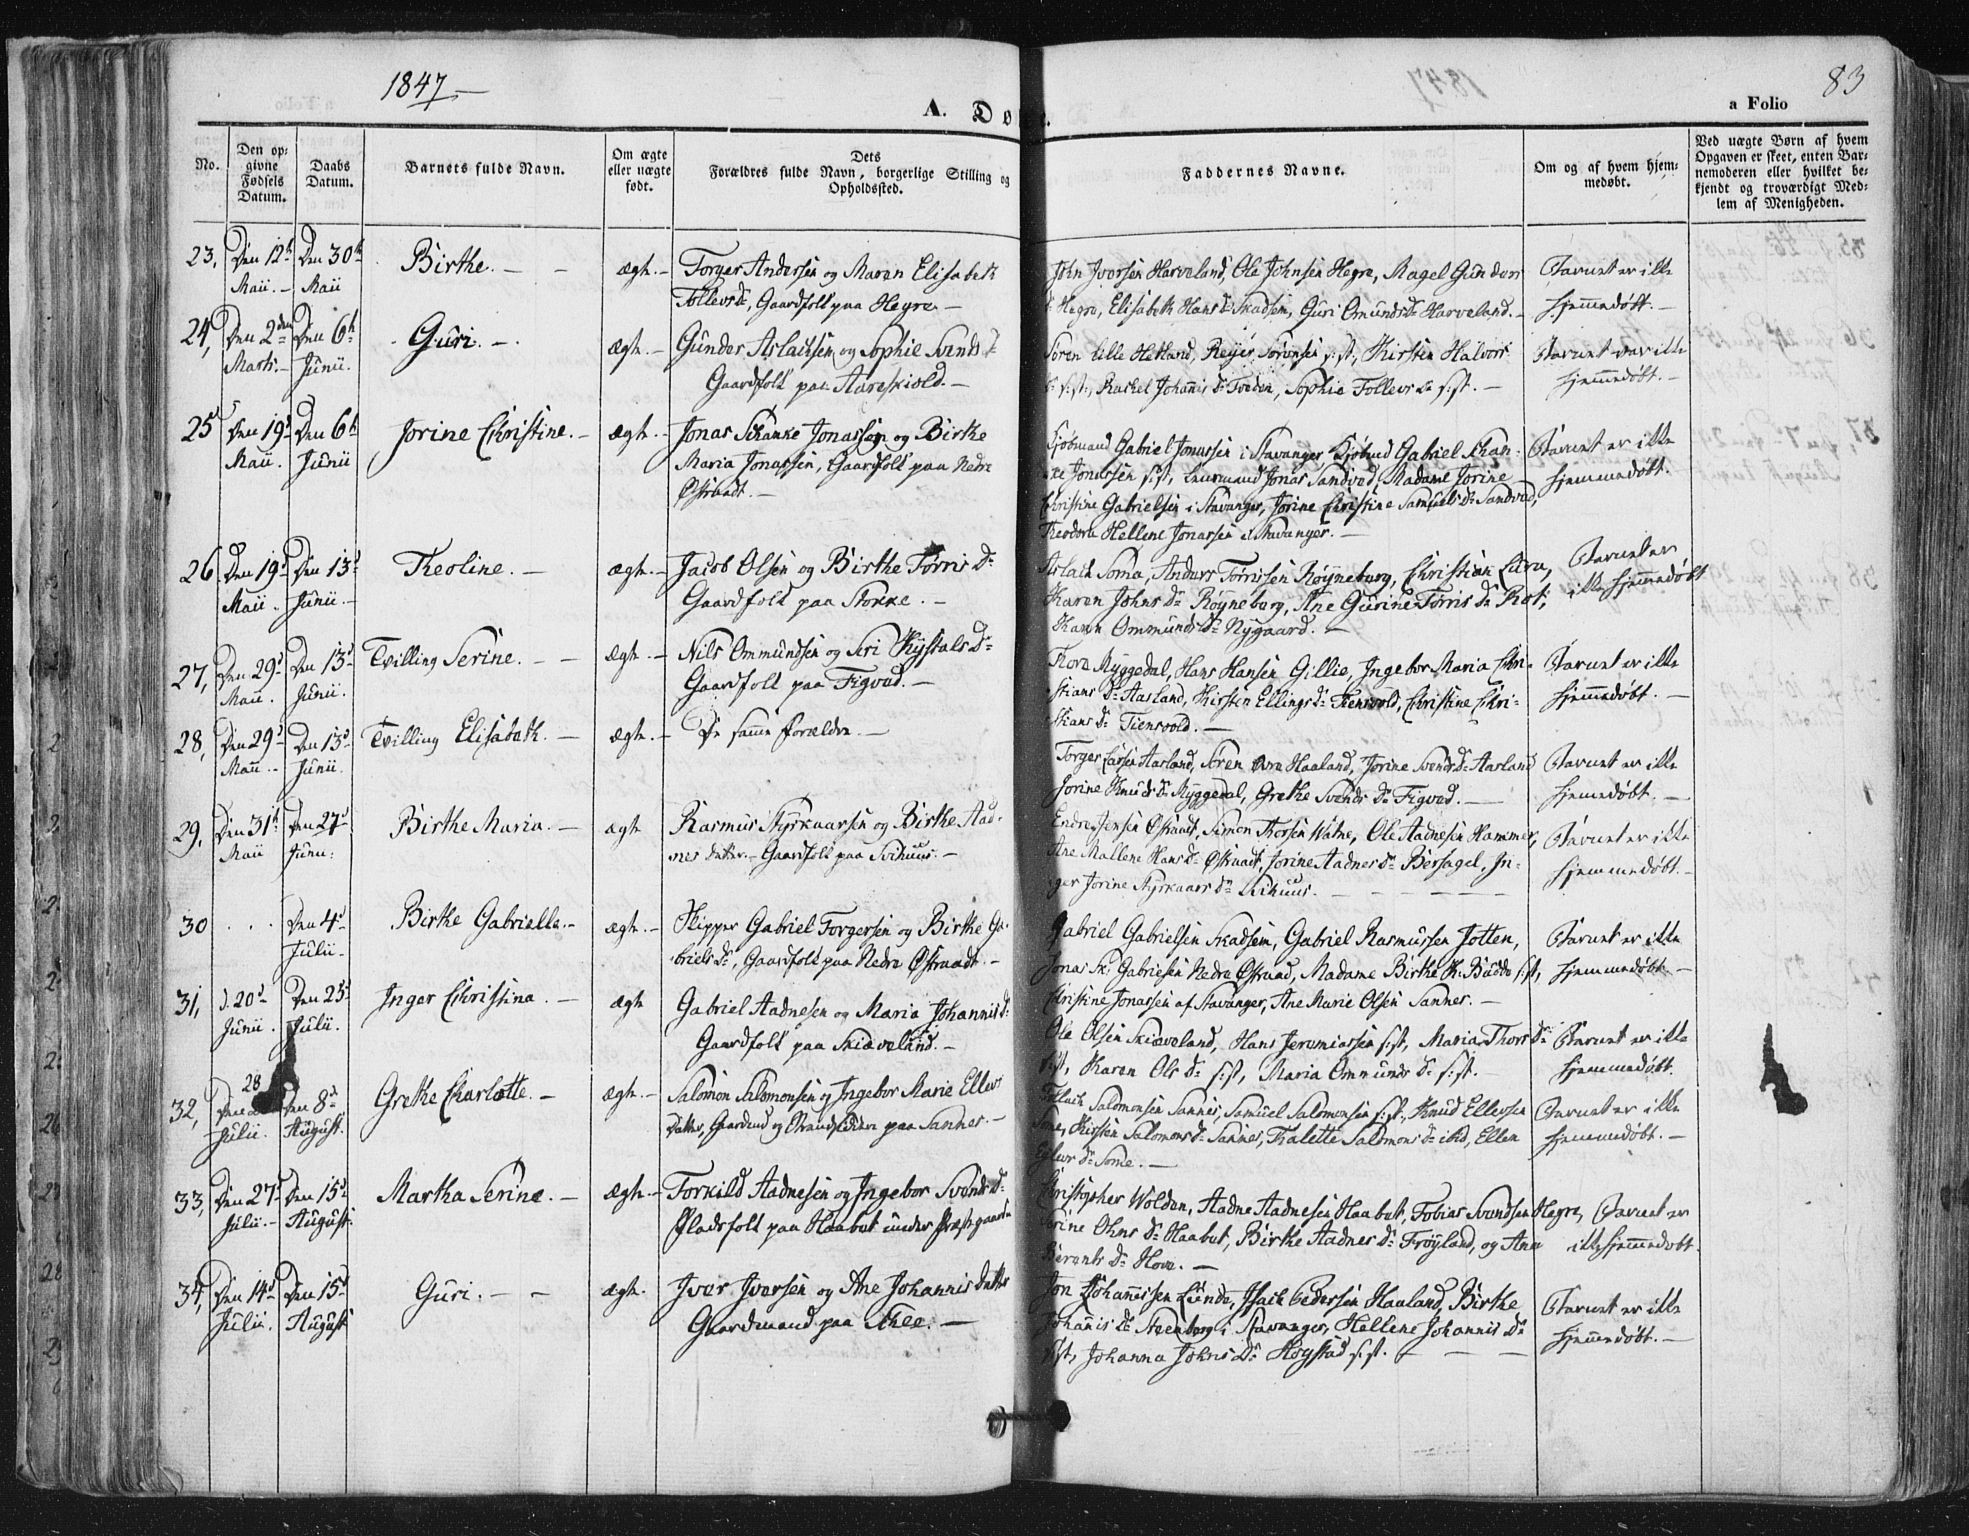 1847
83
A. Døbte.
a Folio
No.
Den op-
givne
Fødsels
Datum.
Daabs
Datum.
Barnets fulde Navn.
Om ægte
eller uægte
født.
Dets
Forældres fulde Navn, borgerlige Stilling og
Opholdssted.
Faddernes Navne.
Om og af hvem hjem-
medøbt.
Ved uægte Børn af hvem
Opgaven er skeet, enten Bar-
nemoderen eller hvilket be-
kjendt og troværdigt Med-
lem af Menigheden.
23, Den 12t Den 30t Birthe. - - ægte. - Torger Andersen og Maren Elisabeth
Maii. - Maii Tollevs Dr, Gaardfolk paa Hegre. -
John Iversen Harveland, Ole Johnsen Hegre, Magel Gundvor
Dr Hegre, Elisabeth Hans Dr Skadsem, Guri Omunds Dr Harveland. -
Barnet er ikke
hjemmedøbt. -
24, Den 2den Den 6t Guri. - ægte. - Gunder Aslachsen og Sophie Svends Dr
Marts. - Junii. Gaardfolk paa Aareskiold. -
Soren lille Hetland, Reijer Sørensen s:st., Kirsten Halvors
Dr s:st., Rachel Johanis Dr Tveden, Sophie Tollevs Dr s:st. -
Barnet var ikke
hjemmedøbt. -
25 Den 19d Den 6t Jorine Christine. - ægte. - Jonas Schanke Jonassen og Birthe
Maii. Junii Maria Jonassen, Gaardfolk paa Nedre
Østraadt. -
Kjøbmand Gabriel Jonassen i Stavanger Kjøbmd Gabriel Schan-
ke Jonassen s:st, Jonas Sandved, Madame Jorine
Christine Gabrielsen i Stavanger, Jorine Christine Samuels Dr Sandved,
Theodora Hellene Jonassen i Stavanger. -
Barnet er ikke
hjemmedøbt.
26 Den 19d Den 13d Theoline. - ægte. - Jacob Olsen og Birthe Torris Dr
Maii. Junii. - Gaardfolk paa Stokke. -
Aslach Soma, Anders Torrissen Røyneburg, Christian Lura,
Karen Johns Dr Røyneberg, Ane Gurine Torris Dr Rot,
Karen Ommunds Dr Nygaard. -
Barnet er
ikke hjemmedøbt
27, Den 29d Den 13d Tvilling Serine. - - ægte. - Nils Ommundsen og Siri Kystols Dr
Maii. Junii. Gaardfolk paa Figved. -
Thore Myggedal, Hans Hansen Gillie, Ingebor Maria Chri-
stians Dr Aasland, Kirsten Ellings Dr Tiensvold, Christine Chri-
stians Dr Tiensvold. -
Barnet er ikke
hjemmedøbt. -
28, Den 29d Den 13d Tvilling Elisabeth. - ægte. - De samme Forældre. -
Maii. - Junii.
Torger Larsen Aasland, Sören øvre Haaland, Jorine Svends Dr Aasland
Jorine Knuds Dr Myggedal, Grethe Svends Dr Figved. -
Barnet er ikke
hjemmedøbt. -
29, Den 31t Den 27d Birthe Maria. - ægte Rasmus Styrkaarsen og Birthe Aad-
Maii Junii: nes Datter. - Gaardfolk paa Svihuus. -
Endre Jensen Østraadt, Simon Thorsen Watne, Ole Aadnesen Hammer,
Ane Mallene Hans Dr Østraadt, Jorine Aadnes Dr Bersagel, In-
ger Jorine Styrkaars Dr Svihuus. - - - -
Barnet er ikke
hjemmedøbt. -
30 . . . Den 4d Birthe Gabrielle. - ægte. - Skipper Gabriel Torgersen og Birthe Ga-
Julii. briels Dr, Gaardfolk paa Nedre Østraadt. -
Gabriel Gabrielsen Skadsem, Gabriel Rasmussen Jotten,
Jonas Sk: Gabrielsen Nedre Østraad, Madame Birthe K. Budde s:st,
Christine Jonassen af Stavanger, Ane Marie Olsen Sannes. -
Barnet er ikke
hjemmedøbt. -
31, d. 20d Den 25d Inger Christina. - ægte Gabriel Aadnesen og Maria Johannis Dr
Junii. Julii. Gaardfolk paa Skiæveland. -
Ole Olsen Skiæveland, Hans Jeremiassen s:st, Maria Thors Dr
s:st, Karen Ols Dr s:st, Maria Ommunds Dr s:st. -
Barnet er ikke
hjemmedøbt.
28
32, Den Den 8d Grethe Charlotte. - ægte. - Salomon Salomonsen og Ingebor Marie Ellevs
Julii. August. Datter, Gaardmd og paa Sannes. -
Tollach Salomonsen Sannes, Samuel Salomonsen s:st., Knud Ellevsen
Some, Kirsten Salomons Dr Sannes, Thalette Salomons Dr ibid, Ellen
Dr Some. -
Barnet er ikke
hjemmedøbt. -
33, Den 27d Den 15d Martha Serine. - ægte. - Torkild Aadnesen og Ingebor Svends Dr
Julii. - August. Pladsfolk paa Haabet under Præstgaarden
Christopher Wolden, Aadne Aadnesen Haabet, Tobias Svendsen Hegre,
Serine Dr Haabet, Birthe Aadnes Dr Frøyland, og Ane
Berents Dr Hove. -
Barnet er
ikke hjemmedøbt
34, Den 14d Den 15d Guri. - - ægte. Iver Iversen og Ane Johannis Datter
Julii. August Gaardmand paa Skee. -
Jon Johannissen Lunde, Isach Pedersen Haaland, Birthe
Johannis Dr Steenberg i Stavanger, Hellene Johannis Dr
s:st, Johanna Johns Dr Høystad s:st. - - -
Barnet er ikke
hjemmedøbt. -